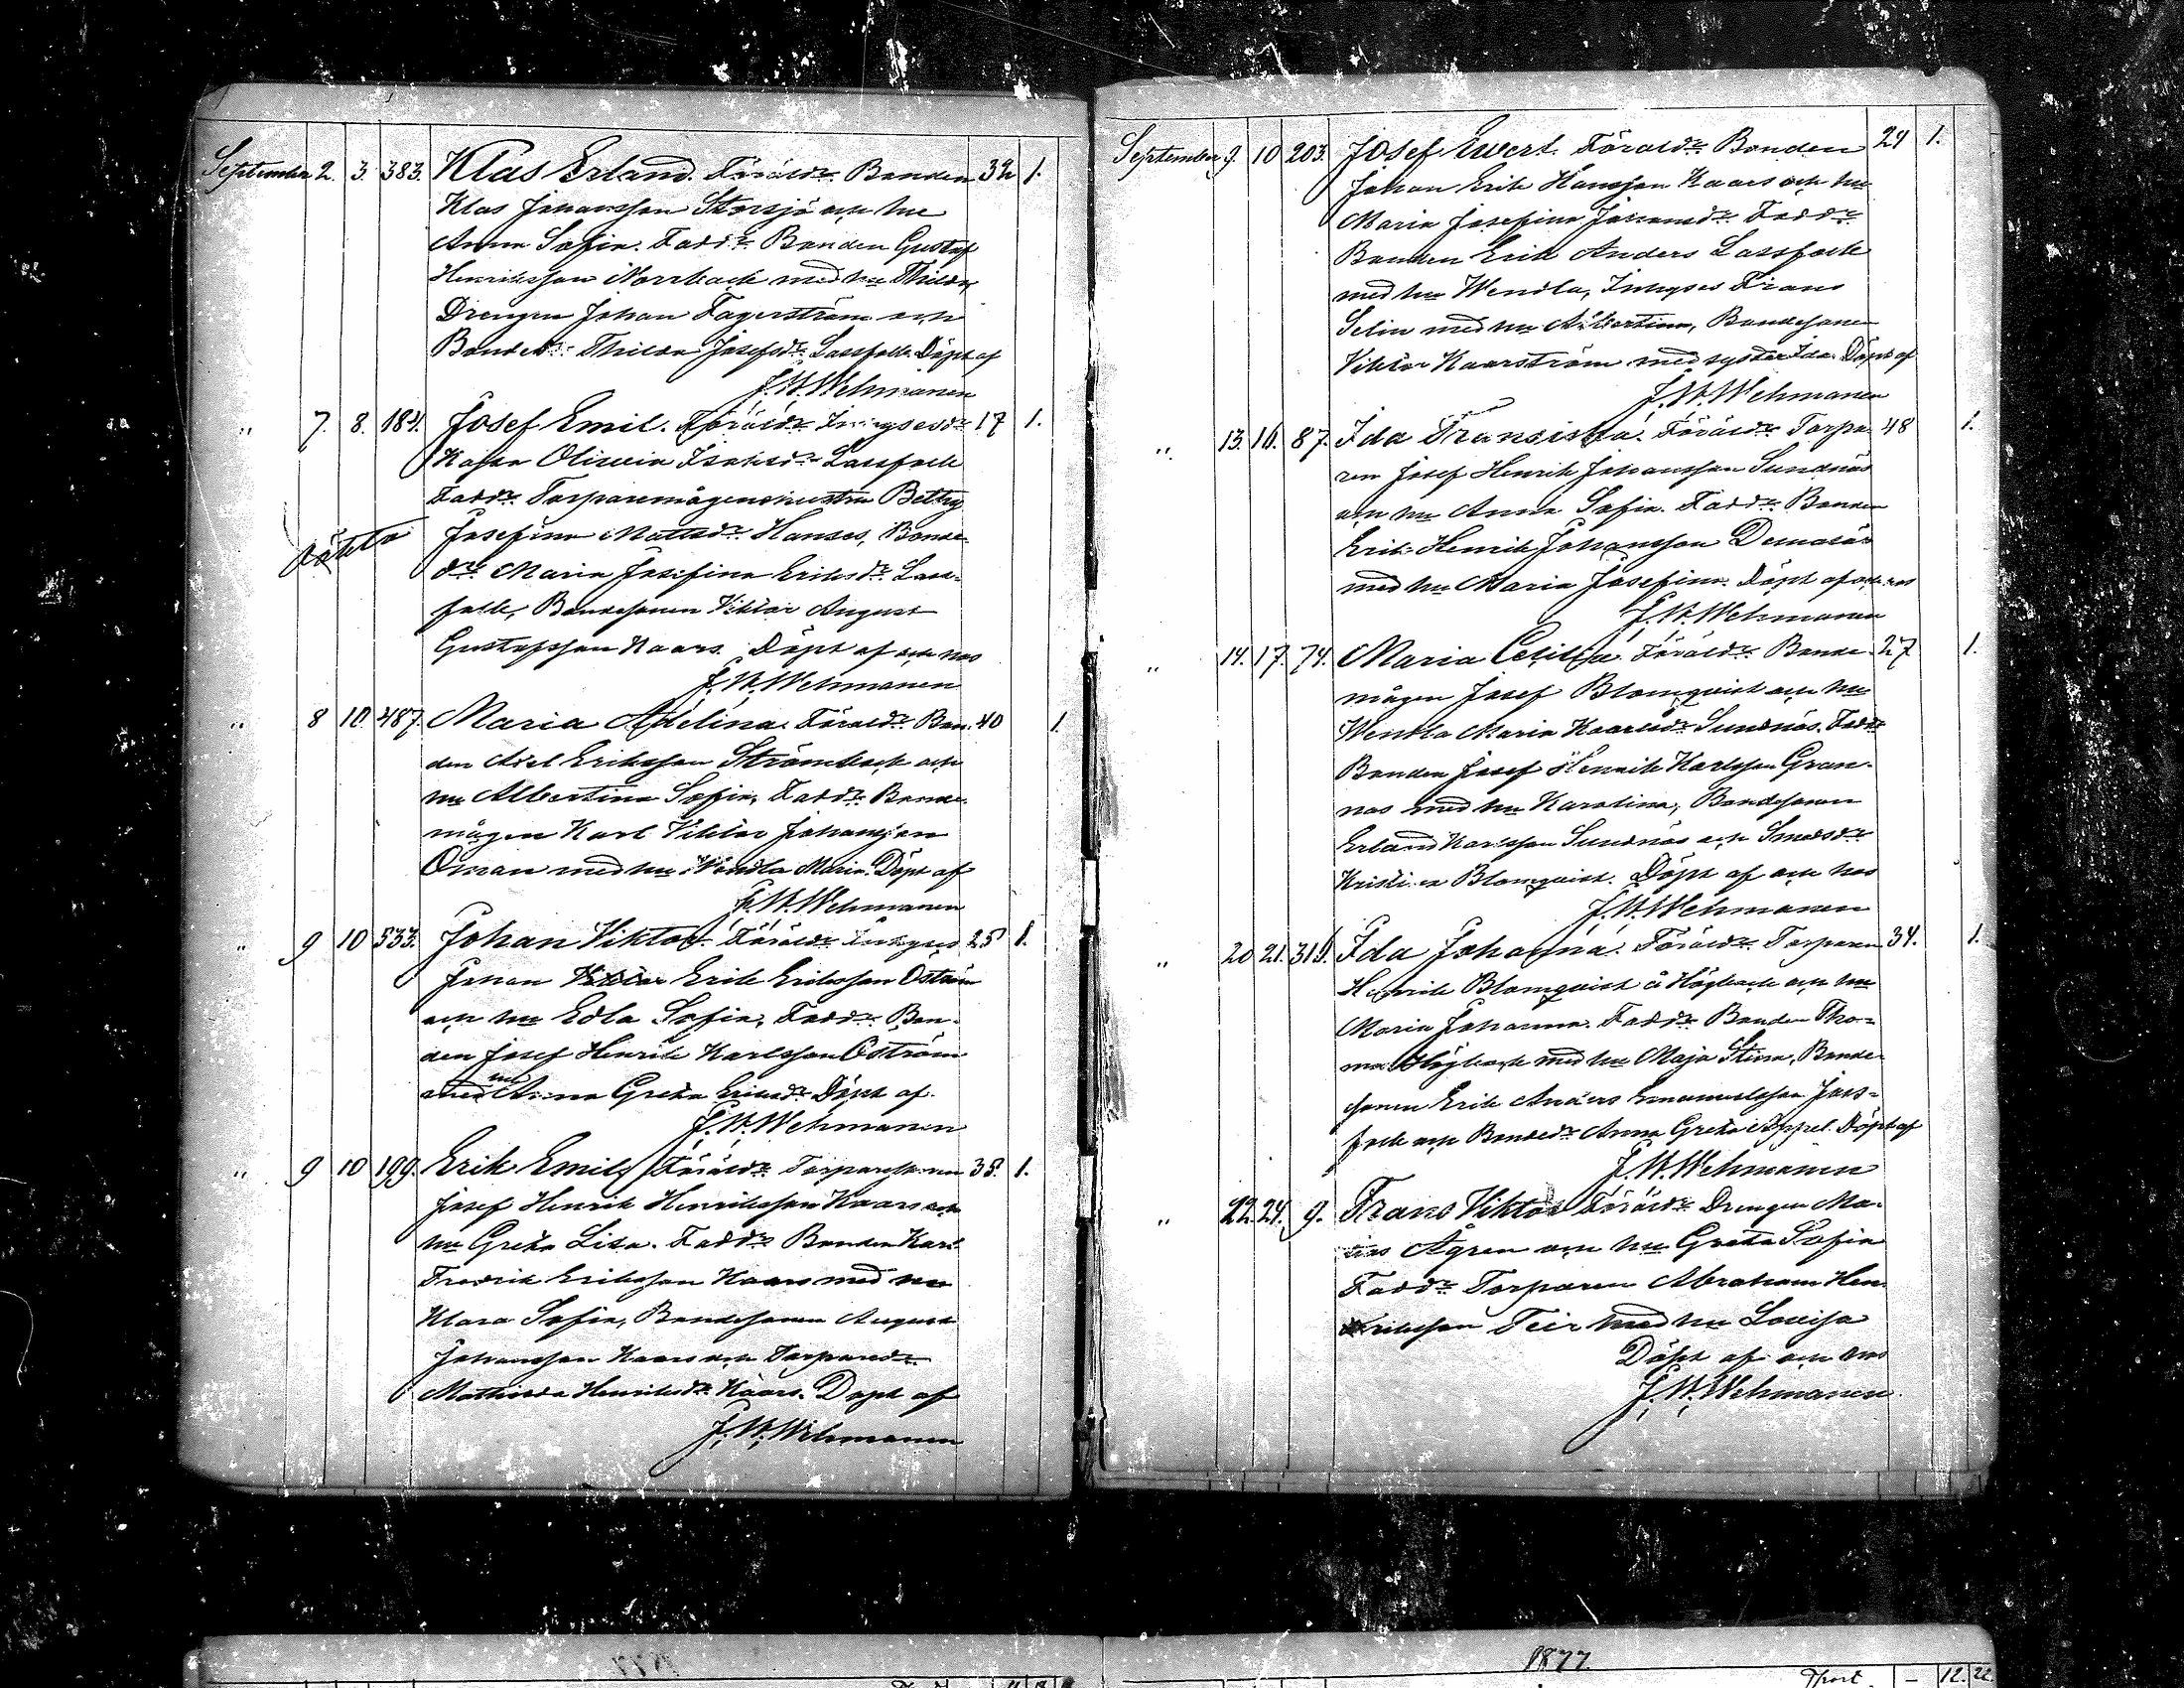 September 2. 3. 383. Klas Erland. Föräldr. Bonden 32 1.
Klas Johansson Storsjö och hu
Anna Sofia. Faddr. Bonden Gustaf
Henriksson Norrback med hu Thilda,
Drengen Johan Fagerström och
Bondedr. Thilda Josefsdr. Lassfolk. Döpt af
J. W. Wehmanen
" 7. 8. 184. Josef Emil. Föräldr. Inhysesdr 17 1.
Kajsa Olivia Isaksdr. Lassfolk
Faddr. Torparemågenshustru Betty
Josefina Mattsdr. Hanses, Bonde-
dr. Maria Josefina Eriksdr. Lass-
folk, Bondesonen Viktor August
Gustafsson Kaars. Döpt af och hos
J. W. Wehmanen
oäkta
" 8 10. 487. Maria Adelina. Föräldr. Bon- 40 1.
den Axel Eriksson Strömback och
hu Albertina Sofia, Faddr. Bonde-
mågen Karl Viktor Johansson
Öman med hu Wendla Maria. Döpt af
J. W. Wehmanen
" 9 10 533. Johan Viktor. Föräldr. Inhyses 25 1.
Johan Viktor Erik Eriksson Öström
och hu Edla Sofia, Faddr. Bon-
den Josef Henrik Karlsson Öström
med hu Anna Greta Eriksdr. Döpt af
J. W. Wehmanen
" 9 10 199. Erik Emil. Föräldr. Torparesonen 35. 1.
Josef Henrik Henriksson Kaars och
hu Greta Lisa. Faddr. Bonden Karl
Fredrik Eriksson Kaars med hu
Klara Sofia, Bondesonen August
Johansson Kaars och Torparedr.
Mathilda Henriksdr. Kaars. Döpt af
J. W. Wehmanen
September 9. 10 203. Josef Evert. Föräldr. Bonden 29 1.
Johan Erik Hansson Kaars och hu
Maria Josefina Johansdr. Faddr.
Bonden Erik Anders Lassfolk
med hu Wendla, Inhyses Frans
Selin med hu Albertina, Bondesonen
Viktor Kaarström med syster Ida. Döpt af
J. W. Wehmanen
" 13. 16. 87. Ida Fransiska. Föräldr. Torpa- 48 1.
ren Josef Henrik Johansson Sundnäs
och hu Anna Sofia. Faddr. Bonden
Erik Henrik Johansson
med hu Maria Josefina. Döpt af och hos
J. W. Wehmanen
" 14. 17. 74. Maria Cecilia. Föräldr. Bonde- 27 1.
mågen Josef Blomqvist och hu
Wendla Maria Kaarlsdr. Sundnäs. Faddr.
Bonden Josef Henrik Karlsson Gran-
nas med hu Karolina, Bondesonen
Erland Karlsson Sundnäs och Smedsdr.
Kristina Blomqvist. Döpt af och hos
J. W. Wehmanen
" 20 21. 319. Ida Johanna. Föräldr. Torparen 34. 1.
Henrik Blomqvist å Högback och hu
Maria Johanna. Faddr. Bonden Tho-
mas Högback med hu Maja Stina, Bonde-
sonen Erik Anders Emanuelsson Joss-
folk och Bondedr. Anna Greta Knippel. Döpt af
J. W. Wehmanen
" 22. 24. 9. Frans Viktor Föräldr. Drengen Ma-
tias Ågren och hu Greta Sofia
Faddr. Torparen Abraham Hen-
riksson Teir med hu Lovisa
Döpt af och hos
J. W. Wehmanen.
1877.
Tport. – 12. 22.